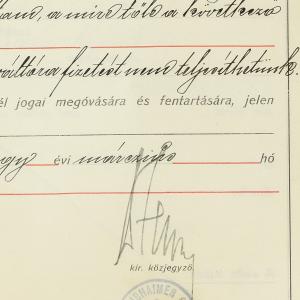 a mire tőle a következő
váltóra fizetést nem teljesíthetünk.
él jogai megóvására és fentartására, jelen
évi márczius hó
kir. közjegyző